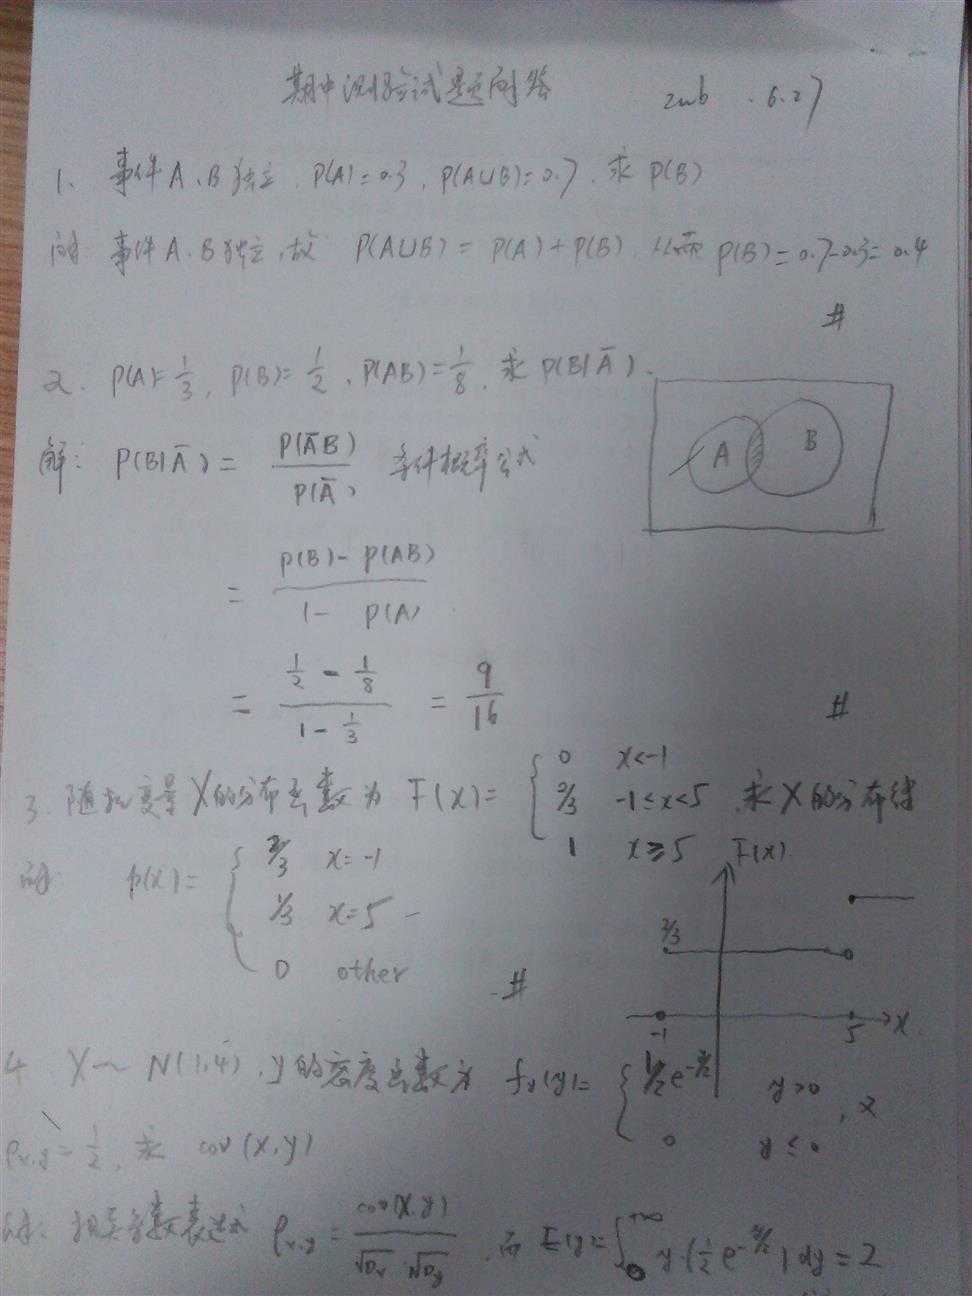 期中测验试题解答 2016.6.27
1、事件A、B独立, P(A)=0.3, P(A∪B)=0.7, 求P(B)
解: 事件A、B独立,故 P(A∪B) = P(A)+P(B), 从而 P(B)=0.7-0.3=0.4
#
2. P(A)=1/3, P(B)=1/2, P(AB)=1/8, 求 P(B|Ā).
解: P(B|Ā) = P(ĀB)/P(Ā) 条件概率公式
A B
= (P(B)-P(AB))/(1-P(A))
= (1/2 - 1/8)/(1 - 1/3) = 9/16
#
3. 随机变量X的分布函数为 F(x)= { 0 x<-1
2/3 -1≤x<5 , 求X的分布律
1 x≥5
解: p(x)= { 2/3 x=-1
1/3 x=5
0 other
#
F(x)
2/3
-1 5 x
4 X~N(1,4), y的密度函数为 f_Y(y)= { 1/2 e^{-y/2} y>0
0 y≤0 , 又
ρ_{x,y}=1/2, 求 cov(x,y)
解: 相关系数表达式 ρ_{x,y} = cov(x,y)/(√Dx·√Dy), 而 Ey=∫_0^{+∞} y·(1/2 e^{-y/2})dy=2